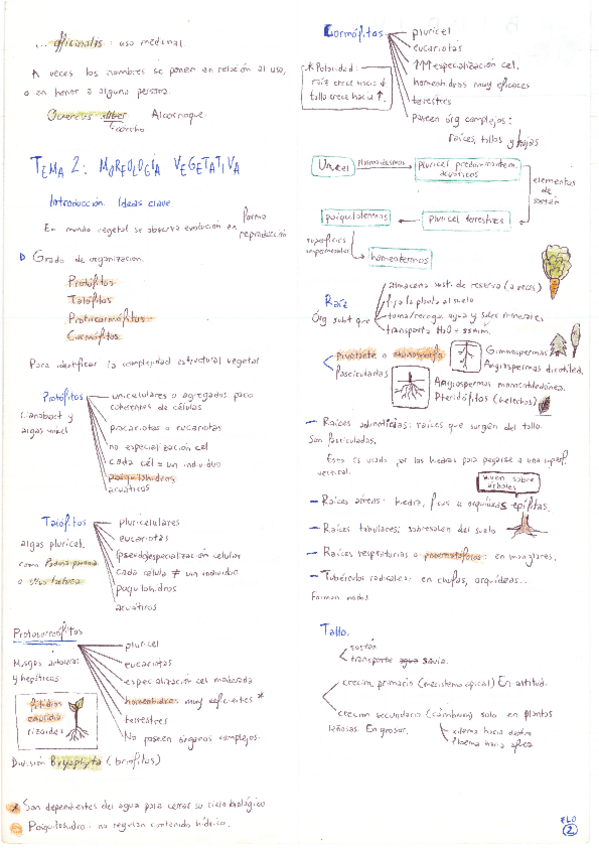 ... officinalis : uso medicinal.
A veces los nombres se ponen en relación al uso,
o en honor a alguna persona.
Quercus suber Alcornoque.
corcho
TEMA 2: MORFOLOGÍA VEGETATIVA
Introducción. Ideas clave
En mundo vegetal se observa evolución en forma
reproducción
Grado de organización.
Protófitos
Talófitos
Protocormófitos
Cormófitos
Para identificar la complejidad estructural vegetal
Protófitos
Cianobact y
algas unicel
unicelulares o agregados poco
coherentes de células
procariotas o eucariotas
no especialización cel
cada cél = un individuo
poiquilohidros
acuáticos
Talófitos
algas pluricel.
como
o
pluricelulares
eucariotas
(pseudo)especialización celular
cada célula ≠ un individuo
poiquilohidros
acuáticos
Protocormófitos
Musgos
y hepáticas
filidios
caulidio
rizoides
pluricel
eucariotas
especialización cel moderada
homeohidros: muy deficientes *
terrestres
No poseen órganos complejos.
División Bryophyta (briofitos)
* Son dependientes del agua para cerrar su ciclo biológico
Poiquilohidro - no regulan contenido hídrico.
Cormófitos
pluricel
eucariotas
↑↑↑ especialización cel.
homeohidros muy eficaces
terrestres
poseen órg complejos:
raíces, tallos y hojas
* Polaridad:
raíz crece hacia ↓
tallo crece hacia ↑.
Unicel
plasmodesmos
pluricel predominantem.
acuáticos
elementos
de
sostén
pluricel terrestres
poiquilotermos
superficies
impermeables
homeotermos
Raíz
Órg subt que
almacena sust. de reserva (a veces)
fija la planta al suelo
toma/recoge agua y sales minerales
transporta H2O + ss mim.
Pivotante o axonomorfa
fasciculadas
Gimnospermas
Angiospermas dicotiled.
Angiospermas monocotiledóneas.
Pteridófitos (helechos)
- Raíces adventicias: raíces que surgen del tallo.
Son fasciculadas.
Esto es usado por las hiedras para pegarse a una superf.
vertical.
viven sobre
árboles
- Raíces aéreas: hiedra, ficus u orquídeas epífitas.
- Raíces tabulares: sobresalen del suelo
- Raíces respiratorias o pneumatóforos: en manglares.
- Tubérculos radicales: en chufas, orquídeas...
Forman nodos
Tallo.
sostén
transporte agua savia.
crecim. primario (meristemo apical) En altitud.
crecim secundario (cámbium) solo en plantas
leñosas. En grosor.
xilema hacia dentro
floema hacia afuera
FLO
2